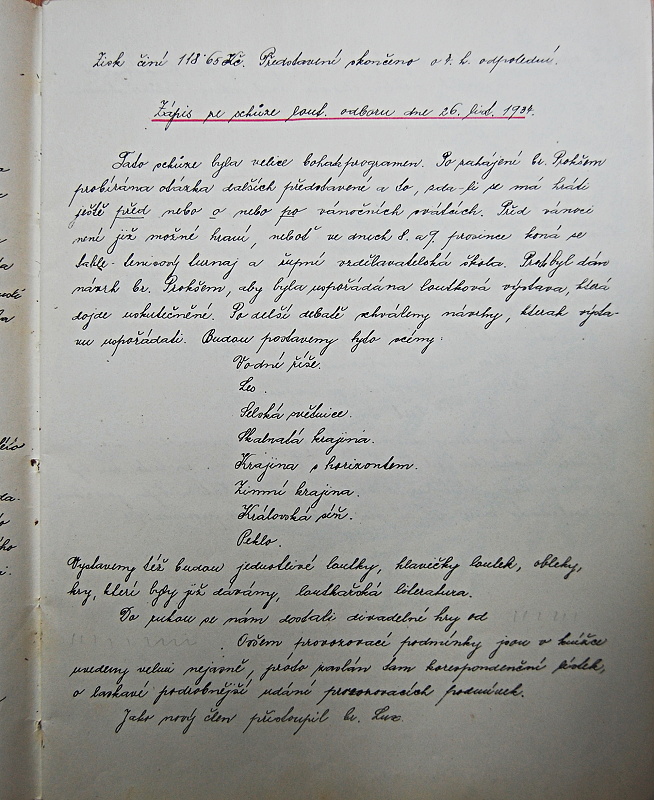 Zisk činí 118·65 Kč. Představení skončeno o 4. h. odpolední.
Zápis ze schůze lout. odboru dne 26. list. 1934.
Tato schůze byla velice bohatprogramen. Po zahájení br. Prokšem
probírána otázka dalších představení a to, zda-li se má hráti
ještě před nebo o nebo po vánočních svátcích. Před vánoci
není již možné hraní, neboť ve dnech 8. a 9. prosince koná se
table-tenisový turnaj a župní vzdělavatelská škola. Proto byl dán
návrh br. Prokšem, aby byla uspořádána loutková výstava, která
dojde uskutečnění. Po delší debatě schváleny návrhy, kterak výsta-
vu uspořádati. Budou postaveny tyto scény:
Vodní říše.
Les.
Selská světnice.
Skalnatá krajina.
Krajina s horizontem.
Zimní krajina.
Královská síň.
Peklo.
Vystaveny též budou jednotlivé loutky, hlavičky loutek, obleky,
hry, které byly již dávány, loutkářská literatura.
Do rukou se nám dostali divadelné hry od
Ovšem provozovací podmínky jsou v knížce
uvedeny velmi nejasně, proto zaslán tam korespondenční lístek,
o laskavé podrobnější udání provozovacích podmínek.
Jako nový člen přistoupil br. Lux.